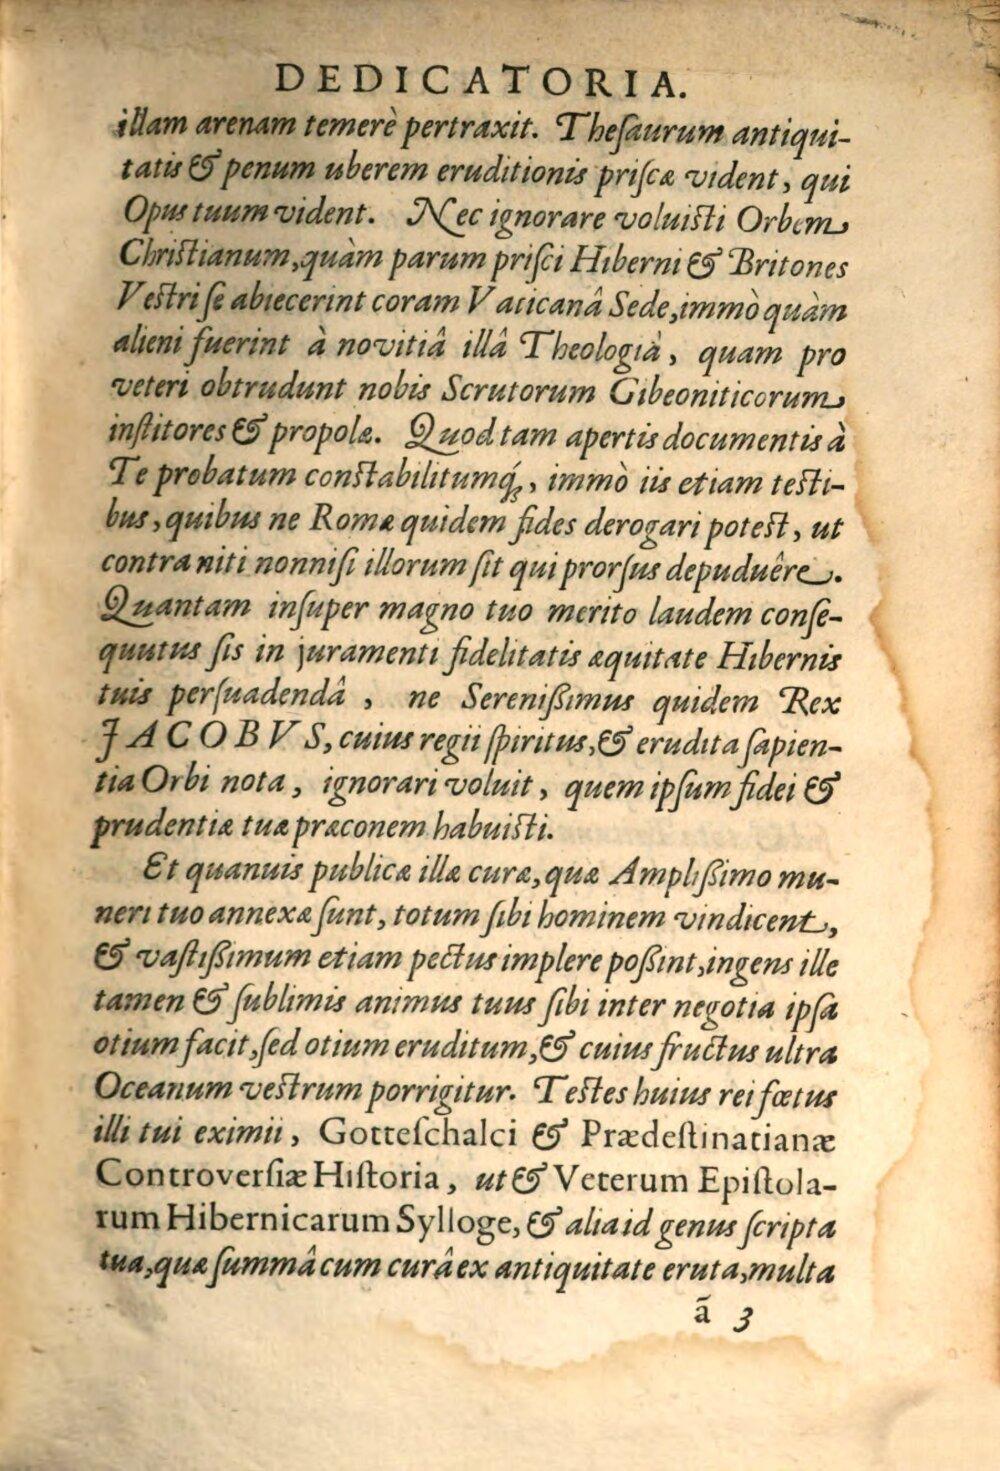 DEDICATORIA.
illam arenam temerè pertraxit. Theſaurum antiqui-
tatis & penum uberem eruditionis priſcæ vident, qui
Opus tuum vident. Nec ignorare voluiſti Orbem
Chriſtianum, quàm parum priſci Hiberni & Britones
Veſtri ſe abiecerint coram Vaticanâ Sede, immò quàm
alieni fuerint à novitiâ illâ Theologiâ, quam pro
veteri obtrudunt nobis Scrutorum Gibeoniticorum
inſtitores & propolæ. Quod tam apertis documentis à
Te probatum conſtabilitumq́ꝫ, immò iis etiam teſti-
bus, quibus ne Romæ quidem fides derogari poteſt, ut
contra niti nonniſi illorum ſit qui prorſus depuduêre.
Quantam inſuper magno tuo merito laudem conſe-
quutus ſis in juramenti fidelitatis æquitate Hibernis
tuis perſuadendâ, ne Sereniſſimus quidem Rex
JACOBVS, cuius regii ſpiritus, & erudita ſapien-
tia Orbi nota, ignorari voluit, quem ipſum fidei &
prudentiæ tuæ præconem habuiſti.
Et quanuis publicæ illæ curæ, quæ Ampliſſimo mu-
neri tuo annexæ ſunt, totum ſibi hominem vindicent,
& vaſtiſſimum etiam pectus implere poſſint, ingens ille
tamen & ſublimis animus tuus ſibi inter negotia ipſa
otium facit, ſed otium eruditum, & cuius fructus ultra
Oceanum veſtrum porrigitur. Teſtes huius rei fœtus
illi tui eximii, Gotteſchalci & Prædeſtinatianæ
Controverſiæ Hiſtoria, ut & Veterum Epiſtola-
rum Hibernicarum Sylloge, & alia id genus ſcripta
tua, quæ ſummâ cum curâ ex antiquitate eruta, multa
ã 3